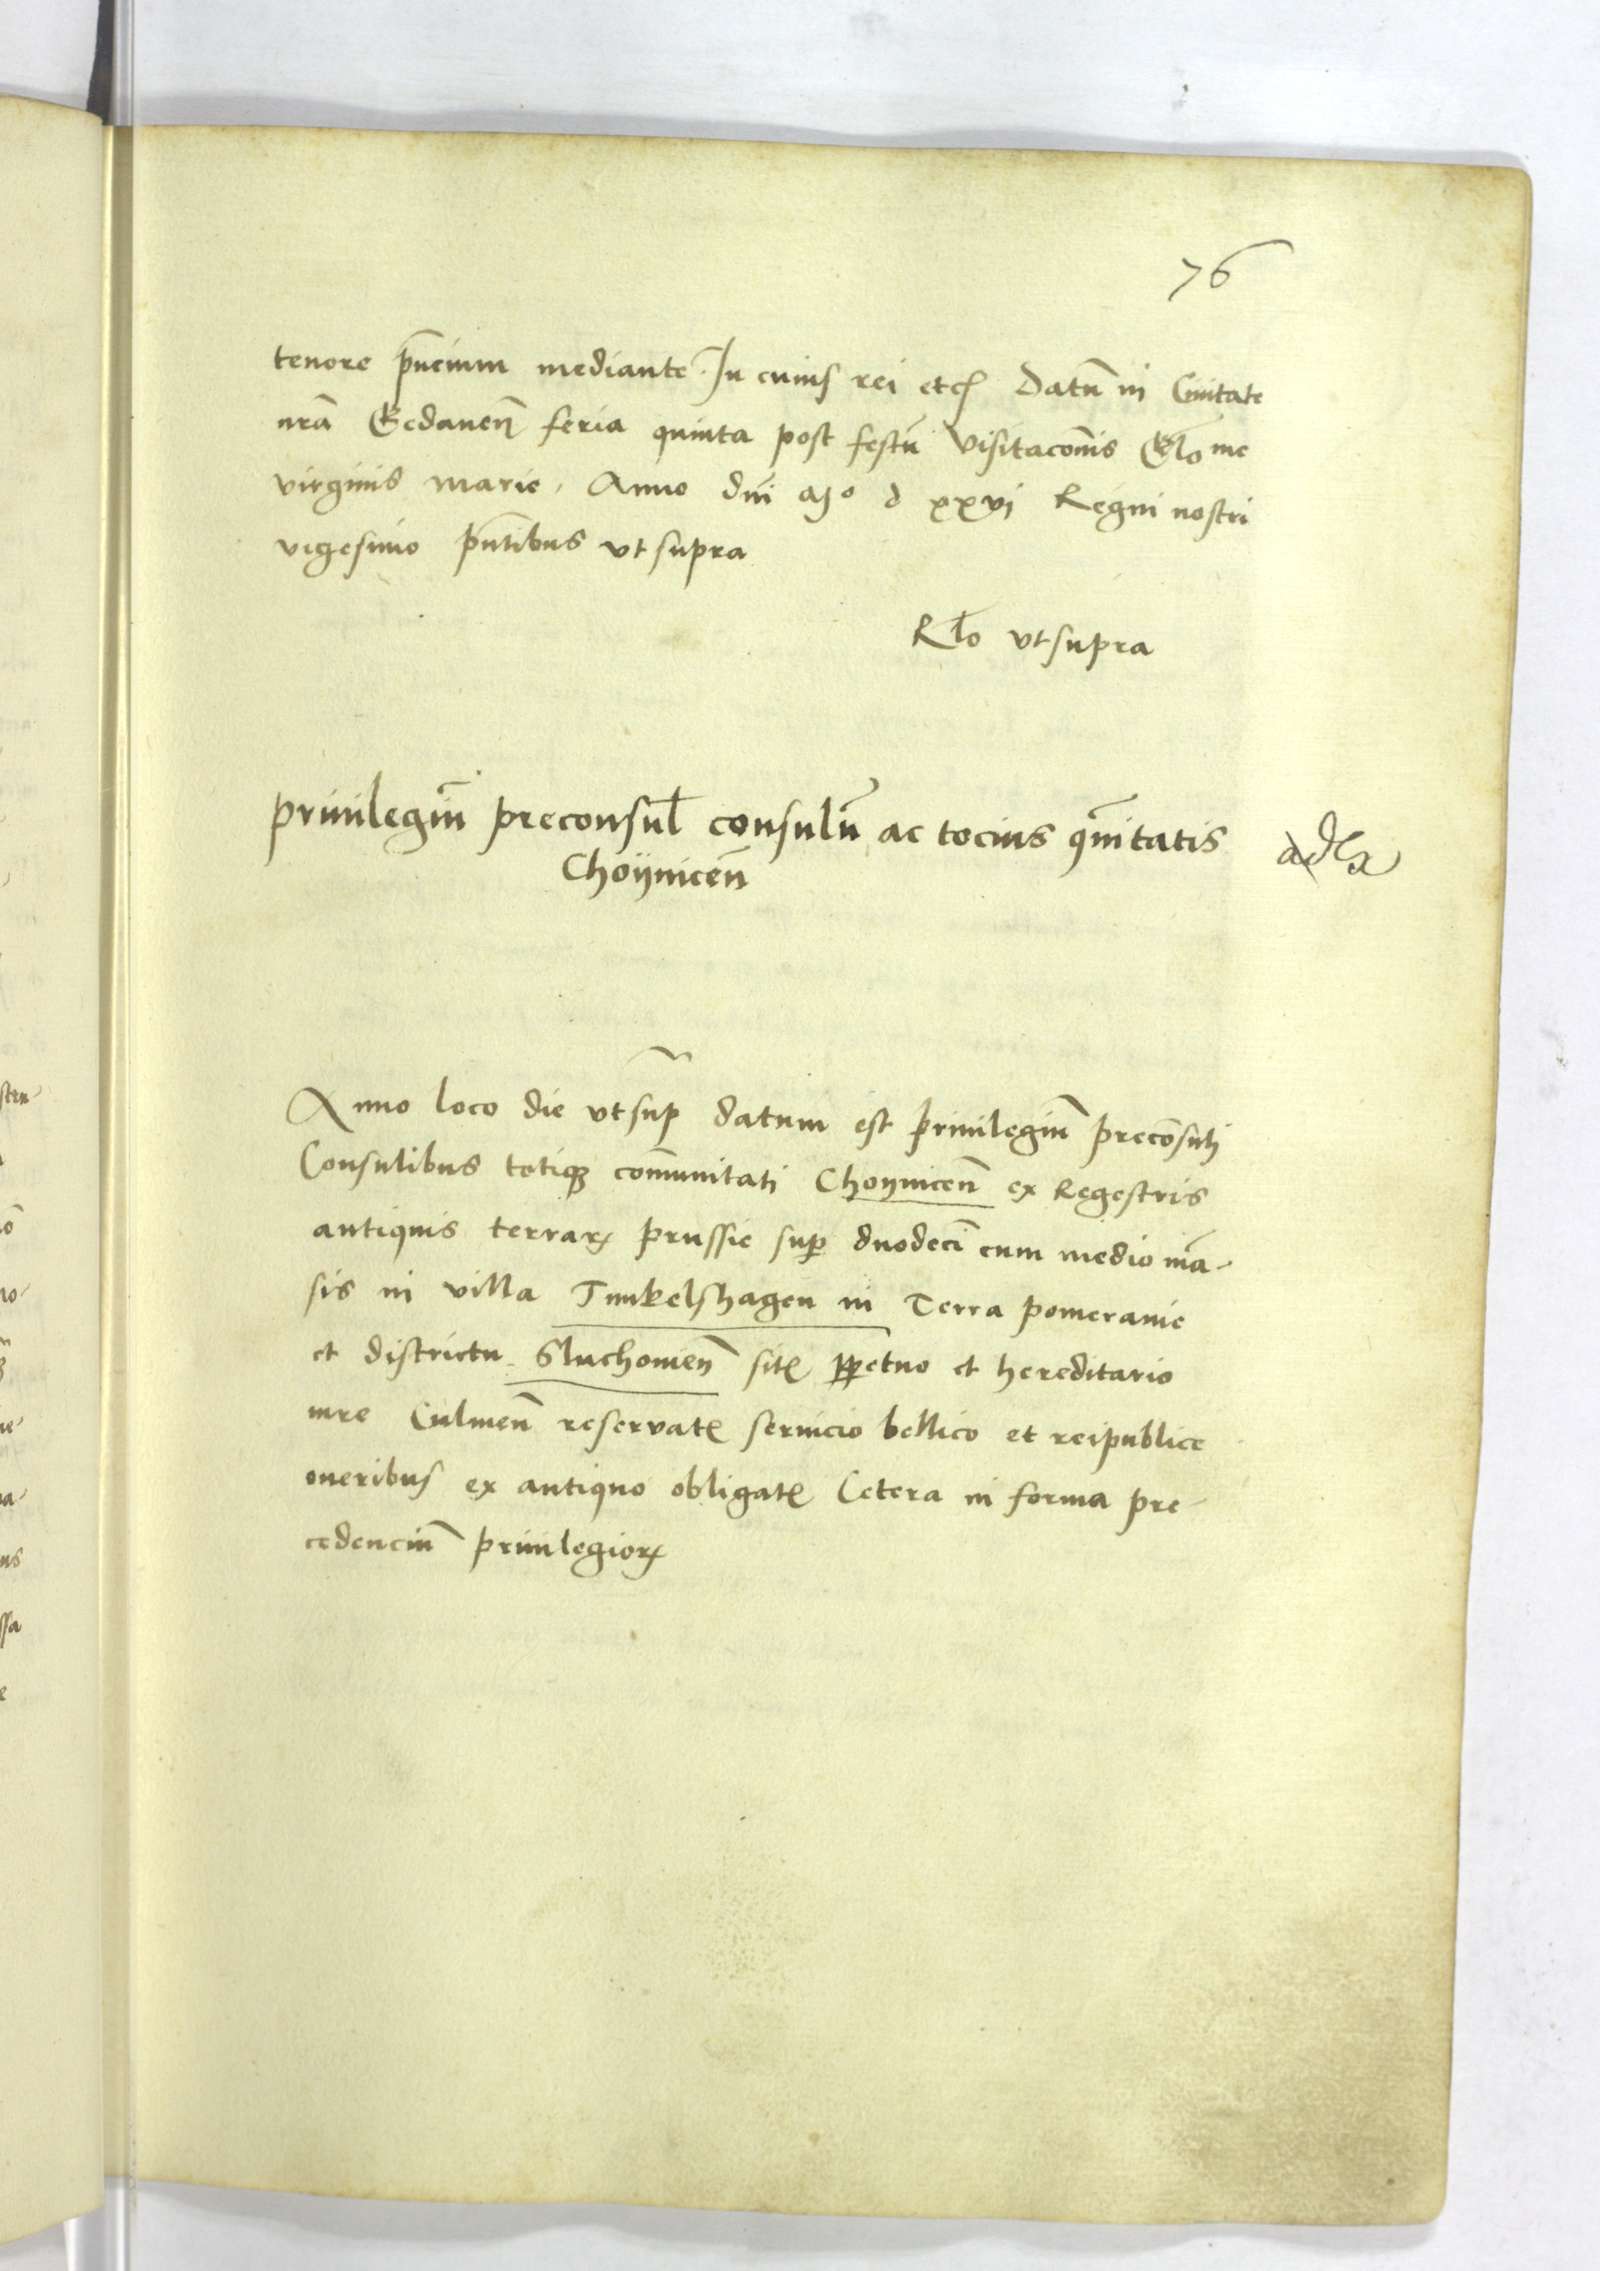 76
tenore pn̄cium mediante. In cuius rei etc̄ Datū in Ciuitate
nr̄a Gedanen̄ feria quinta post festū visitacōnis Glo me
virginis marie, Anno dn̄i Mº d xxvi Regni nostri
vigesimo pn̄tibus vt supra
Rlō vt supra
priuilegiū preconsul̄ consulū ac tocius qm̄itatis
Choÿnicen̄
Anno loco die vt sup̄ datum est priuilegiū precōsuli
Consulibus totiqꝫ com̄unitati Choynicen̄ ex Regestris
antiquis terraꝝ prussie suꝑ duodecī cum medio mā-
sis in villa Tunkelshagen in Terra pomeranie
et districtu Sluchouien̄ sitꝭ ꝑpetuo et hereditario
iure Culmen̄ reservatꝭ seruicio bellico et reipublice
oneribus ex antiquo obligatꝭ Cetera in forma pre-
cedenciū priuilegioꝝ